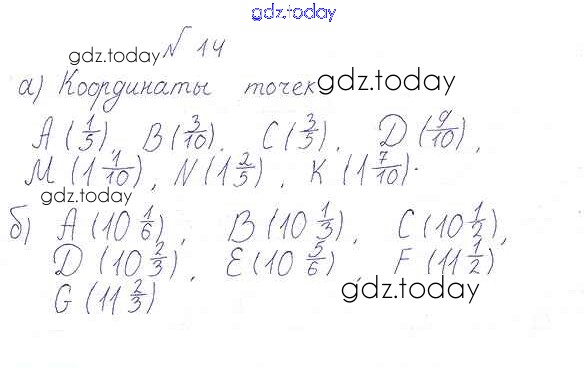 gdz.today
gdz.today № 14
а) Координаты точек gdz.today
A (1/5), B (3/10), C (3/5), D (9/10),
M (1 1/10), N (1 2/5), K (1 7/10).
gdz.today
б) A (10 1/6), B (10 1/3), C (10 1/2),
D (10 2/3), E (10 5/6), F (11 1/2)
G (11 2/3) gdz.today